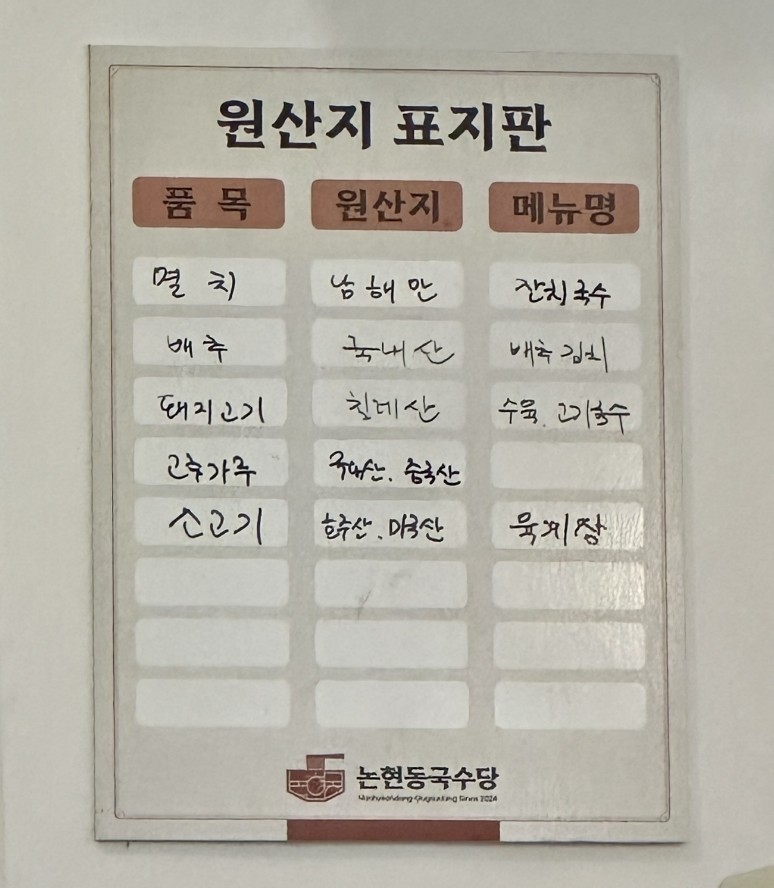 원산지 표지판
품 목 원산지 메뉴명
멸 치 남해안 잔치국수
배추 국내산 배추김치
돼지고기 칠레산 수육, 고기국수
고추가루 국내산, 중국산
소고기 호주산, 미국산 육게장
논현동국수당